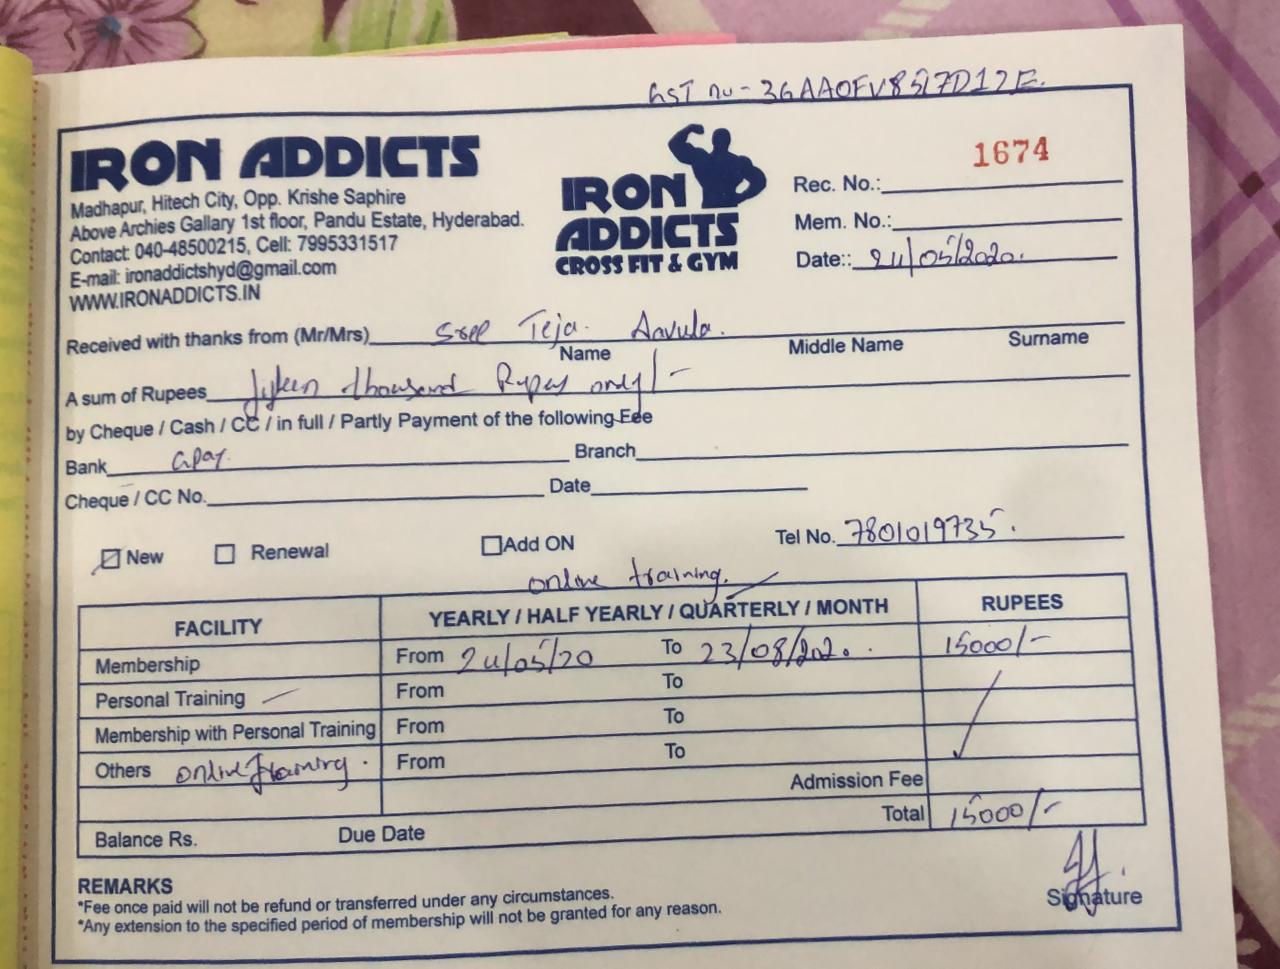 GST no - 36AAOFV8517D1ZE.
IRON ADDICTS
Madhapur, Hitech City, Opp. Krishe Saphire
Above Archies Gallary 1st floor, Pandu Estate, Hyderabad.
Contact: 040-48500215, Cell: 7995331517
E-mail: ironaddictshyd@gmail.com
WWW.IRONADDICTS.IN
IRON
ADDICTS
CROSS FIT & GYM
1674
Rec. No.:
Mem. No.:
Date:: 24/05/2020.
Received with thanks from (Mr/Mrs) Sree Teja. Aavula.
Name Middle Name Surname
A sum of Rupees fifteen thousand Rupees only/-
by Cheque / Cash / CC / in full / Partly Payment of the following Fee
Bank Gpay. Branch
Cheque / CC No. Date
New Renewal Add ON Tel No. 7801019735.
online training.
FACILITY YEARLY / HALF YEARLY / QUARTERLY / MONTH RUPEES
Membership From 24/05/20 To 23/08/2020. 15000/-
Personal Training From To
Membership with Personal Training From To
Others online training. From To
Admission Fee
Total 15000/-
Balance Rs. Due Date
REMARKS
*Fee once paid will not be refund or transferred under any circumstances.
*Any extension to the specified period of membership will not be granted for any reason.
Signature